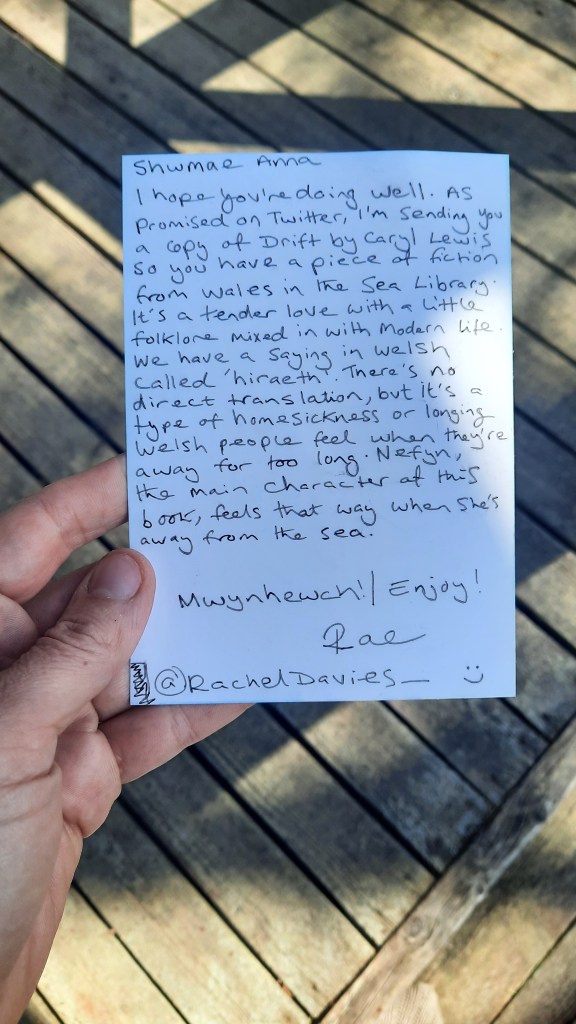 Shwmae Anna
I hope you're doing well. As
promised on Twitter, I'm sending you
a copy of Drift by Caryl Lewis
so you have a piece of fiction
from Wales in the Sea Library.
It's a tender love with a little
folklore mixed in with modern life.
We have a saying in Welsh
called 'hiraeth'. There's no
direct translation, but it's a
type of homesickness or longing
Welsh people feel when they're
away for too long. Nefyn,
the main character of this
book, feels that way when she's
away from the sea.
Mwynhewch! | Enjoy!
Rae
@RachelDavies_ :)